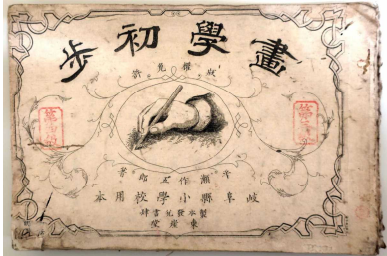 畫學初步
版權免許
平瀨作五郎著
岐阜縣小學校用本
製本發兌書肆
東崖堂